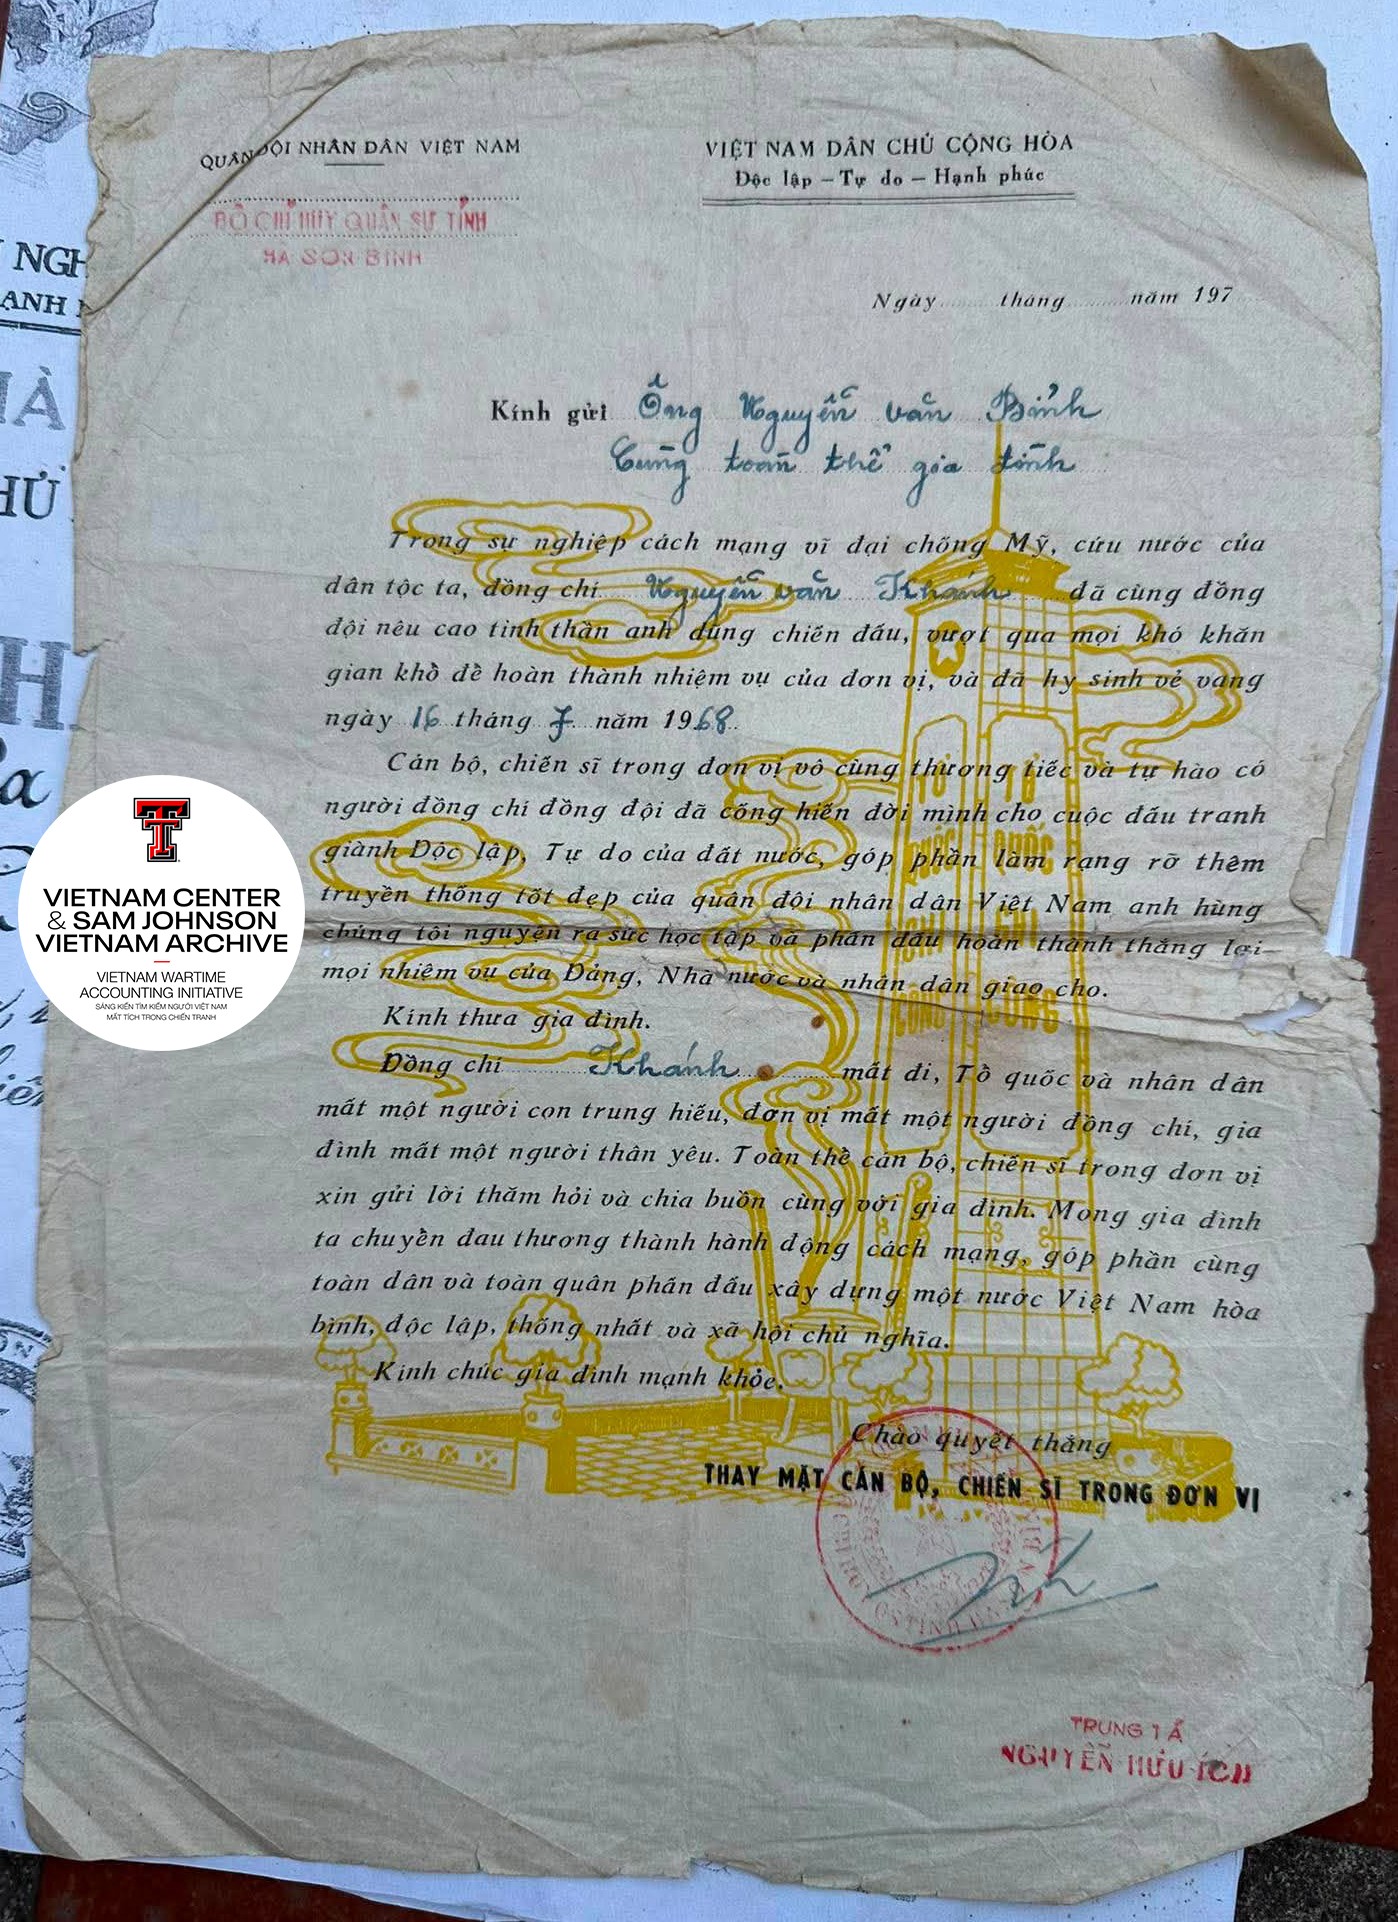 QUÂN ĐỘI NHÂN DÂN VIỆT NAM
BỘ CHỈ HUY QUÂN SỰ TỈNH
HÀ SƠN BÌNH
VIỆT NAM DÂN CHỦ CỘNG HÒA
Độc lập – Tự do – Hạnh phúc
Ngày ........ tháng ........ năm 197
Kính gửi Ông Nguyễn văn Bỉnh
Cùng toàn thể gia đình
Trong sự nghiệp cách mạng vĩ đại chống Mỹ, cứu nước của
dân tộc ta, đồng chí Nguyễn văn Khánh đã cùng đồng
đội nêu cao tinh thần anh dũng chiến đấu, vượt qua mọi khó khăn
gian khổ để hoàn thành nhiệm vụ của đơn vị, và đã hy sinh vẻ vang
ngày 16 tháng 7 năm 1968.
Cán bộ, chiến sĩ trong đơn vị vô cùng thương tiếc và tự hào có
người đồng chí đồng đội đã cống hiến đời mình cho cuộc đấu tranh
giành Độc lập, Tự do của đất nước, góp phần làm rạng rỡ thêm
truyền thống tốt đẹp của quân đội nhân dân Việt Nam anh hùng
chúng tôi nguyện ra sức học tập và phấn đấu hoàn thành thắng lợi
mọi nhiệm vụ của Đảng, Nhà nước và nhân dân giao cho.
Kính thưa gia đình.
Đồng chí Khánh mất đi, Tổ quốc và nhân dân
mất một người con trung hiếu, đơn vị mất một người đồng chí, gia
đình mất một người thân yêu. Toàn thể cán bộ, chiến sĩ trong đơn vị
xin gửi lời thăm hỏi và chia buồn cùng với gia đình. Mong gia đình
ta chuyển đau thương thành hành động cách mạng, góp phần cùng
toàn dân và toàn quân phấn đấu xây dựng một nước Việt Nam hòa
bình, độc lập, thống nhất và xã hội chủ nghĩa.
Kính chúc gia đình mạnh khỏe.
Chào quyết thắng
THAY MẶT CÁN BỘ, CHIẾN SĨ TRONG ĐƠN VỊ
TRUNG TÁ
NGUYỄN HỮU ÍCH
TỔ QUỐC GHI CÔNG
TỔ QUỐC GHI CÔNG
VIETNAM CENTER
& SAM JOHNSON
VIETNAM ARCHIVE
VIETNAM WARTIME
ACCOUNTING INITIATIVE
SÁNG KIẾN TÌM KIẾM NGƯỜI VIỆT NAM
MẤT TÍCH TRONG CHIẾN TRANH